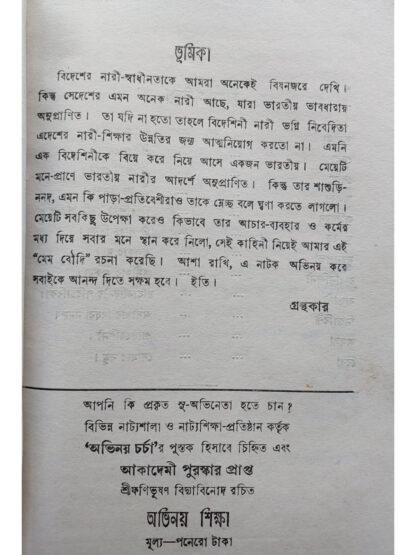 ভূমিকা
বিদেশের নারী-স্বাধীনতাকে আমরা অনেকেই বিষনজরে দেখি।
কিন্তু সেদেশের এমন অনেক নারী আছে, যারা ভারতীয় ভাবধারায়
অনুপ্রাণিত। তা যদি না হতো তাহলে বিদেশিনী নারী ভগ্নি নিবেদিতা
এদেশের নারী-শিক্ষার উন্নতির জন্য আত্মনিয়োগ করতো না। এমনি
এক বিদেশিনীকে বিয়ে করে নিয়ে আসে একজন ভারতীয়। মেয়েটি
মনে-প্রাণে ভারতীয় নারীর আদর্শে অনুপ্রাণিত। কিন্তু তার শাশুড়ি-
ননদ, এমন কি পাড়া-প্রতিবেশীরাও তাকে ম্লেচ্ছ বলে ঘৃণা করতে লাগলো।
মেয়েটি সবকিছু উপেক্ষা করেও কিভাবে তার আচার-ব্যবহার ও কর্মের
মধ্য দিয়ে সবার মনে স্থান করে নিলো, সেই কাহিনী নিয়েই আমার এই
“মেম বৌদি” রচনা করেছি। আশা রাখি, এ নাটক অভিনয় করে
সবাইকে আনন্দ দিতে সক্ষম হবে। ইতি।
গ্রন্থকার
আপনি কি প্রকৃত সু-অভিনেতা হতে চান?
বিভিন্ন নাট্যশালা ও নাট্যশিক্ষা-প্রতিষ্ঠান কর্তৃক
‘অভিনয় চর্চা’র পুস্তক হিসাবে চিহ্নিত এবং
আকাদেমী পুরস্কার প্রাপ্ত
শ্রীফণিভূষণ বিদ্যাবিনোদ রচিত
অভিনয় শিক্ষা
মূল্য—পনেরো টাকা